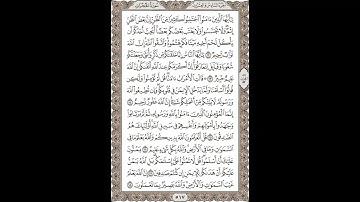 يَٰٓأَيُّهَا ٱلَّذِينَ ءَامَنُوا۟ ٱجْتَنِبُوا۟ كَثِيرًا مِّنَ ٱلظَّنِّ إِنَّ بَعْضَ ٱلظَّنِّ
إِثْمٌ وَلَا تَجَسَّسُوا۟ وَلَا يَغْتَب بَّعْضُكُم بَعْضًا أَيُحِبُّ أَحَدُكُمْ أَن
يَأْكُلَ لَحْمَ أَخِيهِ مَيْتًا فَكَرِهْتُمُوهُ وَٱتَّقُوا۟ ٱللَّهَ إِنَّ ٱللَّهَ
تَوَّابٌ رَّحِيمٌ ١٢ يَٰٓأَيُّهَا ٱلنَّاسُ إِنَّا خَلَقْنَٰكُم مِّن ذَكَرٍ وَأُنثَىٰ وَجَعَلْنَٰكُمْ
شُعُوبًا وَقَبَآئِلَ لِتَعَارَفُوٓا۟ إِنَّ أَكْرَمَكُمْ عِندَ ٱللَّهِ أَتْقَىٰكُمْ إِنَّ ٱللَّهَ
عَلِيمٌ خَبِيرٌ ١٣ قَالَتِ ٱلْأَعْرَابُ ءَامَنَّا قُل لَّمْ تُؤْمِنُوا۟ وَلَٰكِن
قُولُوٓا۟ أَسْلَمْنَا وَلَمَّا يَدْخُلِ ٱلْإِيمَٰنُ فِى قُلُوبِكُمْ وَإِن تُطِيعُوا۟ ٱللَّهَ
وَرَسُولَهُۥ لَا يَلِتْكُم مِّنْ أَعْمَٰلِكُمْ شَيْـًٔا إِنَّ ٱللَّهَ غَفُورٌ رَّحِيمٌ ١٤
إِنَّمَا ٱلْمُؤْمِنُونَ ٱلَّذِينَ ءَامَنُوا۟ بِٱللَّهِ وَرَسُولِهِۦ ثُمَّ لَمْ يَرْتَابُوا۟
وَجَٰهَدُوا۟ بِأَمْوَٰلِهِمْ وَأَنفُسِهِمْ فِى سَبِيلِ ٱللَّهِ أُو۟لَٰٓئِكَ هُمُ
ٱلصَّٰدِقُونَ ١٥ قُلْ أَتُعَلِّمُونَ ٱللَّهَ بِدِينِكُمْ وَٱللَّهُ يَعْلَمُ مَا فِى
ٱلسَّمَٰوَٰتِ وَمَا فِى ٱلْأَرْضِ وَٱللَّهُ بِكُلِّ شَىْءٍ عَلِيمٌ ١٦ يَمُنُّونَ
عَلَيْكَ أَنْ أَسْلَمُوا۟ قُل لَّا تَمُنُّوا۟ عَلَىَّ إِسْلَٰمَكُم بَلِ ٱللَّهُ يَمُنُّ
عَلَيْكُمْ أَنْ هَدَىٰكُمْ لِلْإِيمَٰنِ إِن كُنتُمْ صَٰدِقِينَ ١٧ إِنَّ ٱللَّهَ يَعْلَمُ
غَيْبَ ٱلسَّمَٰوَٰتِ وَٱلْأَرْضِ وَٱللَّهُ بَصِيرٌۢ بِمَا تَعْمَلُونَ ١٨
٥١٧